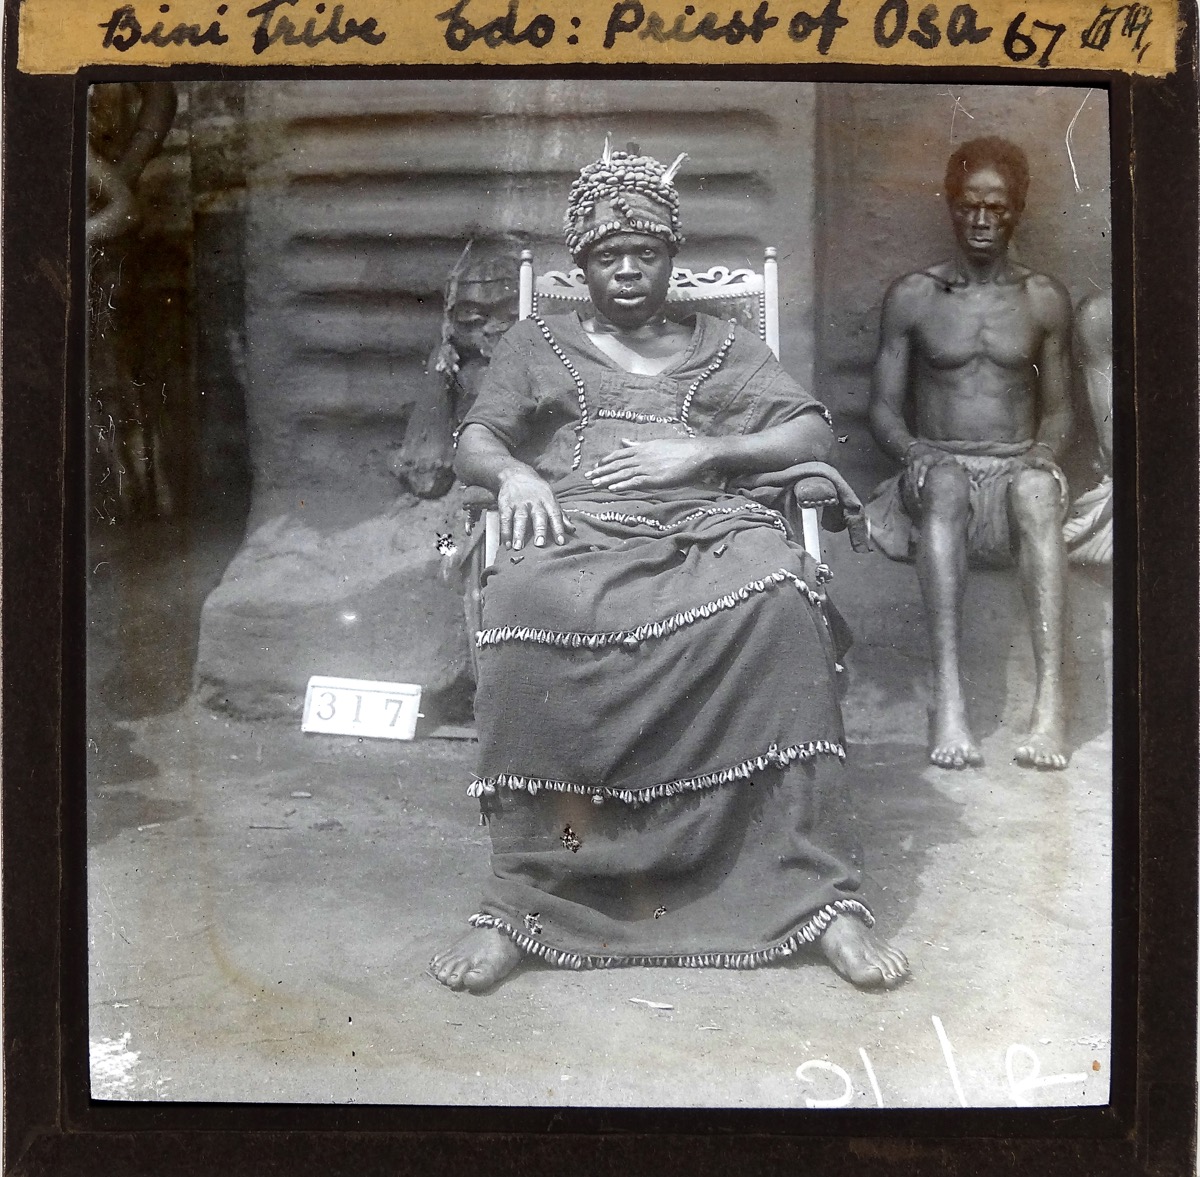 Bini Tribe Edo: Priest of OSA 67
317